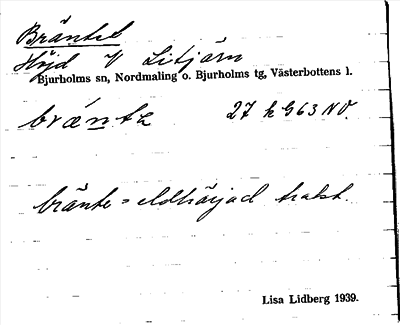 Bräntet
Höjd V Litjärn
Bjurholms sn, Nordmaling o. Bjurholms tg, Västerbottens l.
27 h G63 NV.
bränte = eldhärjad trakt.
Lisa Lidberg 1939.